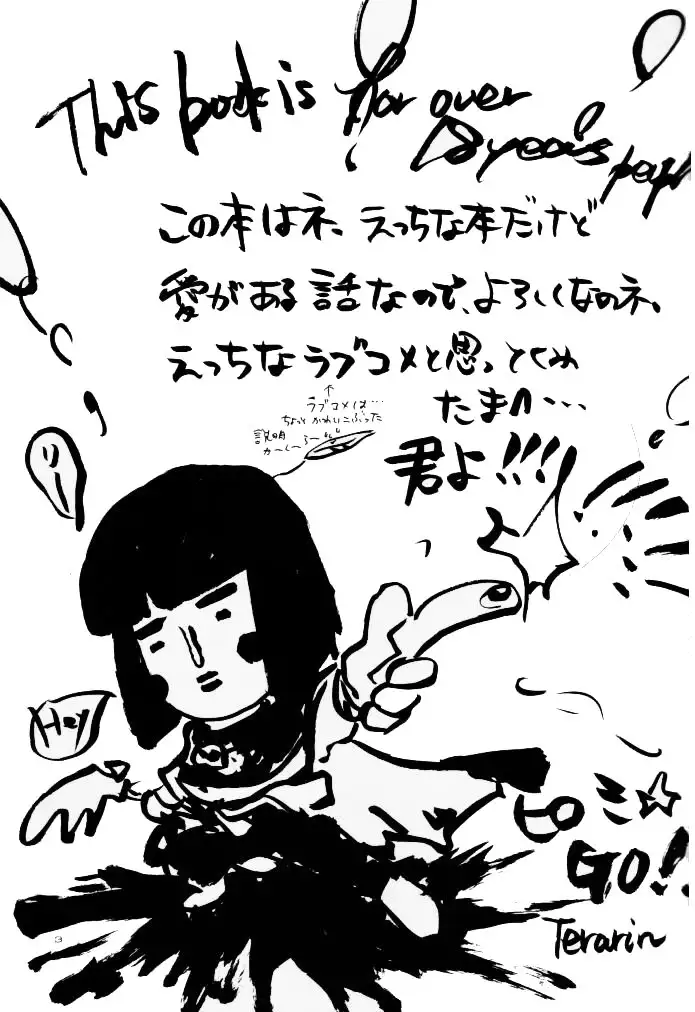 This book is for over
18 years people
この本はネ、えっちな本だけど
愛がある話なので、よろしくなのネ。
えっちなラブコメと思っとくれ
たまへ…
君よ!!!
↑
ラブコメは…
ちょっとかわいこぶった
説明
か〜く〜る〜
Hey
GO!!
Terarin
3